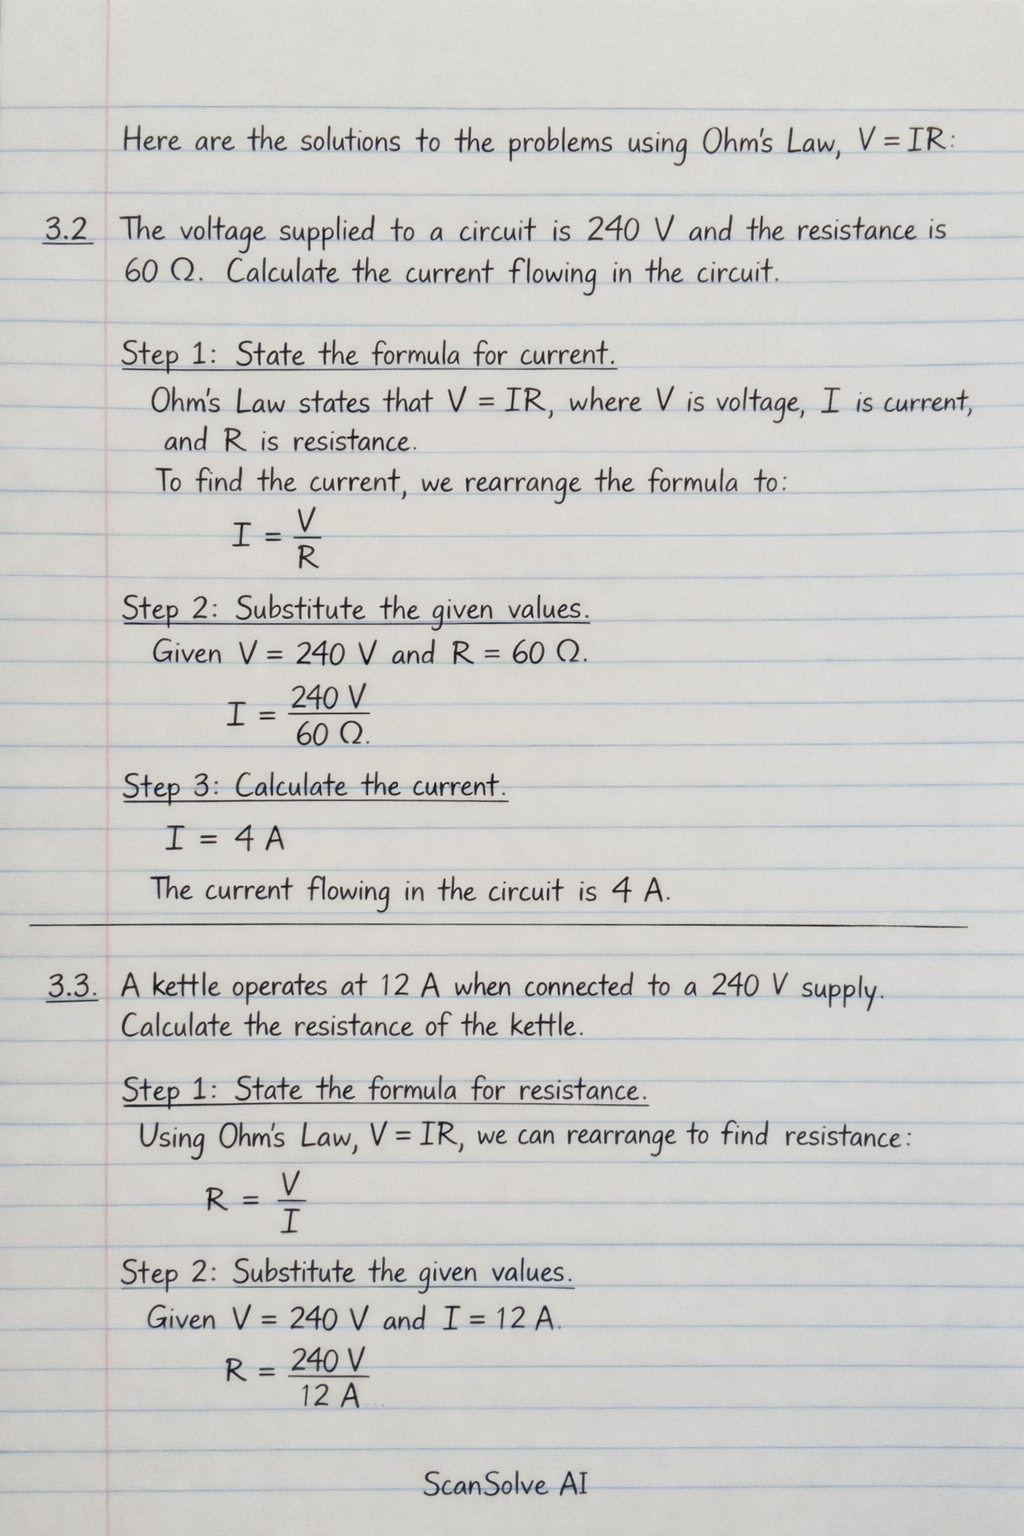 Here are the solutions to the problems using Ohm's Law, V = IR:
3.2 The voltage supplied to a circuit is 240 V and the resistance is
60 Ω. Calculate the current flowing in the circuit.
Step 1: State the formula for current.
Ohm's Law states that V = IR, where V is voltage, I is current,
and R is resistance.
To find the current, we rearrange the formula to:
I = V/R
Step 2: Substitute the given values.
Given V = 240 V and R = 60 Ω.
I = 240 V/60 Ω.
Step 3: Calculate the current.
I = 4 A
The current flowing in the circuit is 4 A.
3.3. A kettle operates at 12 A when connected to a 240 V supply.
Calculate the resistance of the kettle.
Step 1: State the formula for resistance.
Using Ohm's Law, V = IR, we can rearrange to find resistance:
R = V/I
Step 2: Substitute the given values.
Given V = 240 V and I = 12 A.
R = 240 V/12 A
ScanSolve AI